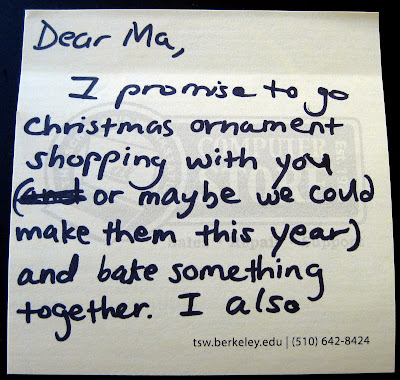 Dear Ma,
I promise to go
christmas ornament
shopping with you
(and or maybe we could
make them this year)
and bake something
together. I also
COMPUTER
tsw.berkeley.edu | (510) 642-8424